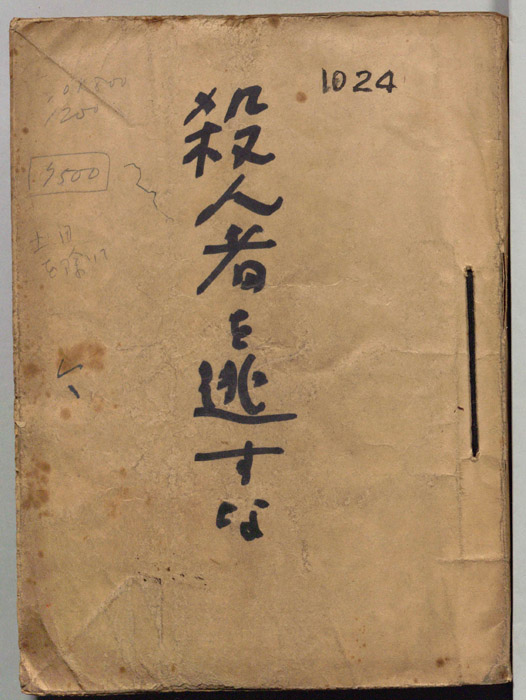 1024
殺人者を逃すな
1200
9500
土日
を除け